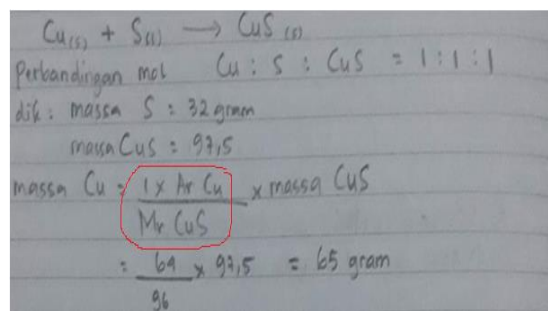 Cu(s) + S(s) → CuS (s)
Perbandingan mol Cu : S : CuS = 1 : 1 : 1
dik : massa S : 32 gram
massa CuS = 97,5
massa Cu = 1 x Ar Cu / Mr CuS x massa CuS
= 64 / 96 x 97,5 = 65 gram